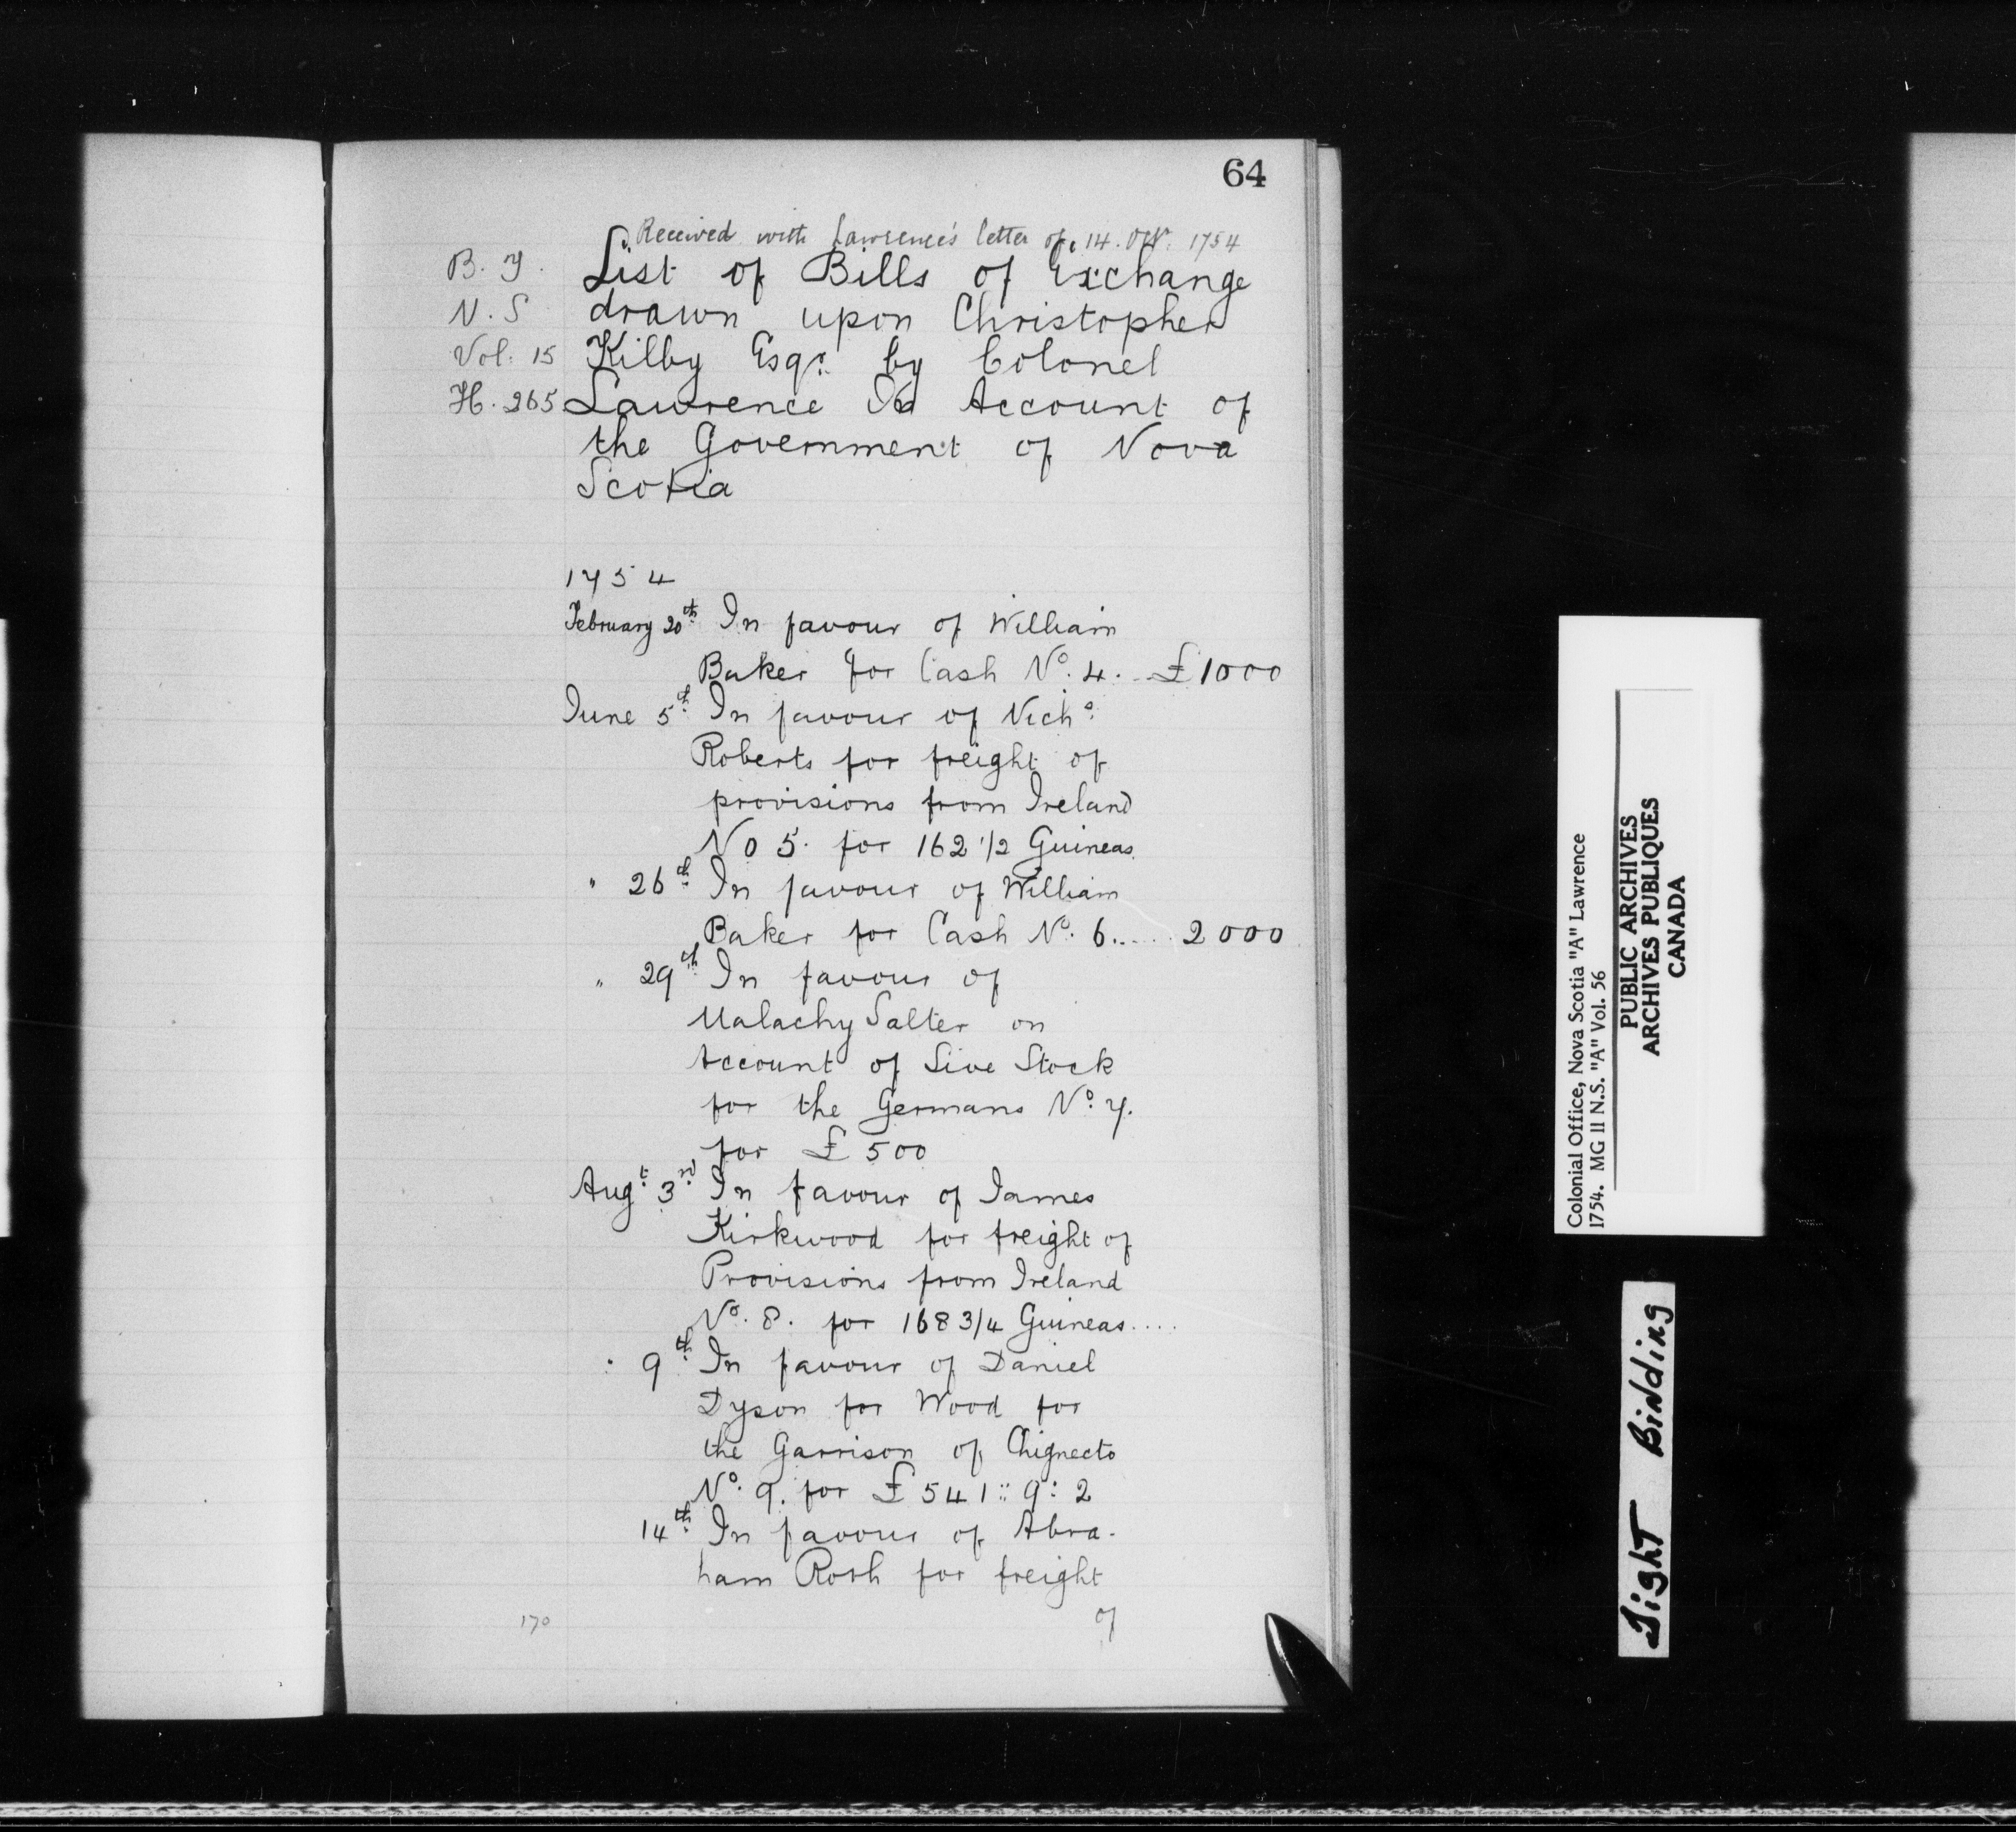 64
Received with Lawrence's letter of 14. Octr. 1754
B. T.
N. S
Vol: 15
H. 265
List of Bills of Exchange
drawn upon Christopher
Kilby Esqr. by Colonel
Lawrence On Account of
the Government of Nova
Scotia
1754
February 20th In favour of William
Baker for Cash No. 4. .. £1000
June 5th In favour of Nicho.
Roberts for freight of
provisions from Ireland
No 5. for 162 1/2 Guineas.
" 26th In favour of William
Baker for Cash No. 6...... 2000
" 29th In favour of
Malachy Salter on
Account of Live Stock
for the Germans No. 7.
for £ 500
Augt. 3rd In favour of James
Kirkwood for freight of
Provisions from Ireland
No. 8. for 168 3/4 Guineas....
" 9th In favour of Daniel
Dyson for Wood for
the Garrison of Chignecto
No. 9. for £ 541 :: 9 : 2
14th In favour of Abra-
ham Rosh for freight
of
170
Colonial Office, Nova Scotia "A" Lawrence
1754. MG 11 N.S. "A" Vol. 56
PUBLIC ARCHIVES
ARCHIVES PUBLIQUES
CANADA
Tight Binding